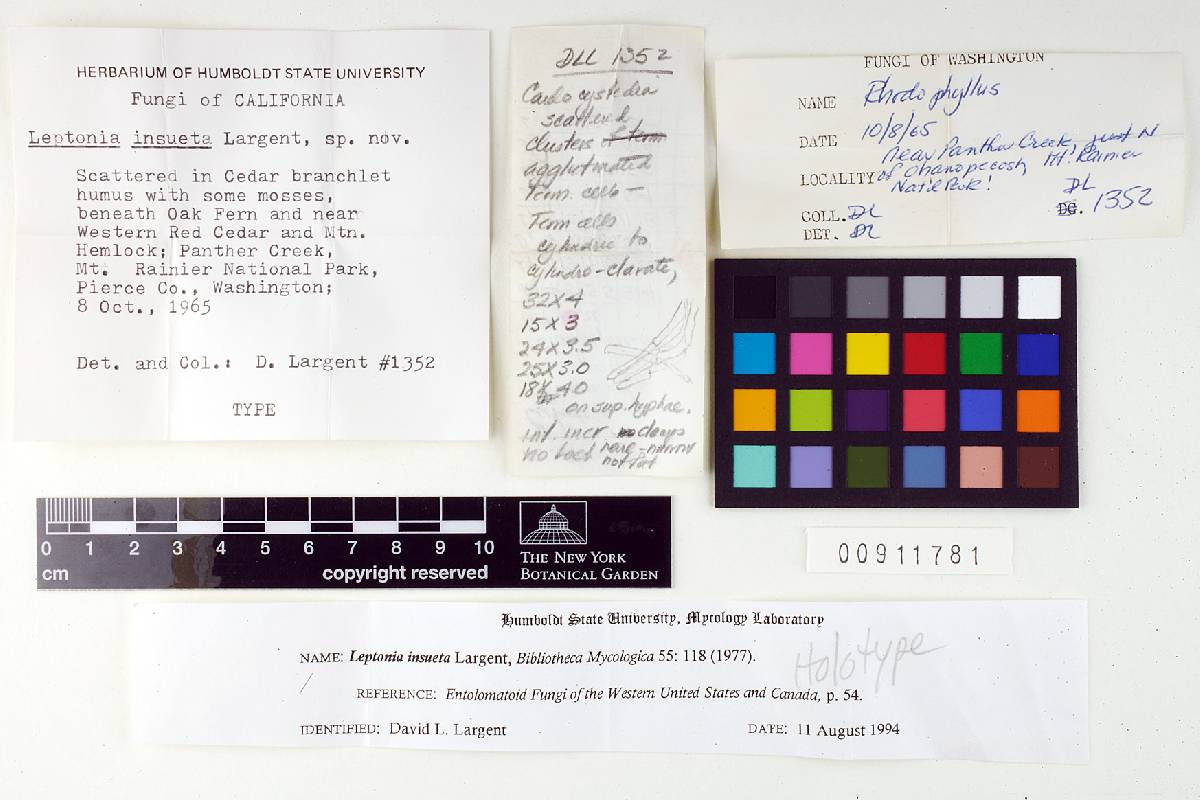 HERBARIUM OF HUMBOLDT STATE UNIVERSITY
Fungi of CALIFORNIA
Leptonia insueta Largent, sp. nov.
Scattered in Cedar branchlet
humus with some mosses,
beneath Oak Fern and near
Western Red Cedar and Mtn.
Hemlock; Panther Creek,
Mt. Rainier National Park,
Pierce Co., Washington;
8 Oct., 1965
Det. and Col.: D. Largent #1352
TYPE
DLL 1352
scattered
clusters
agglutinated
Term. cells —
Term cells
cylindric to
cylindro-clavate,
32X4
15X3
24X3.5
25X3.0
18X 40
on sup. hyphae.
int. incr clamps
FUNGI OF WASHINGTON
NAME Rhodophyllus
DATE 10/8/65
near Panther Creek, just N
LOCALITY of Ohanopecosh, Mt. Rainier
Nat'l Park!
DL
COLL. DL 1352
DET. DL
0 1 2 3 4 5 6 7 8 9 10
cm copyright reserved
THE NEW YORK
BOTANICAL GARDEN
00911781
Humboldt State University, Mycology Laboratory
NAME: Leptonia insueta Largent, Bibliotheca Mycologica 55: 118 (1977).
Holotype
REFERENCE: Entolomatoid Fungi of the Western United States and Canada, p. 54.
IDENTIFIED: David L. Largent DATE: 11 August 1994